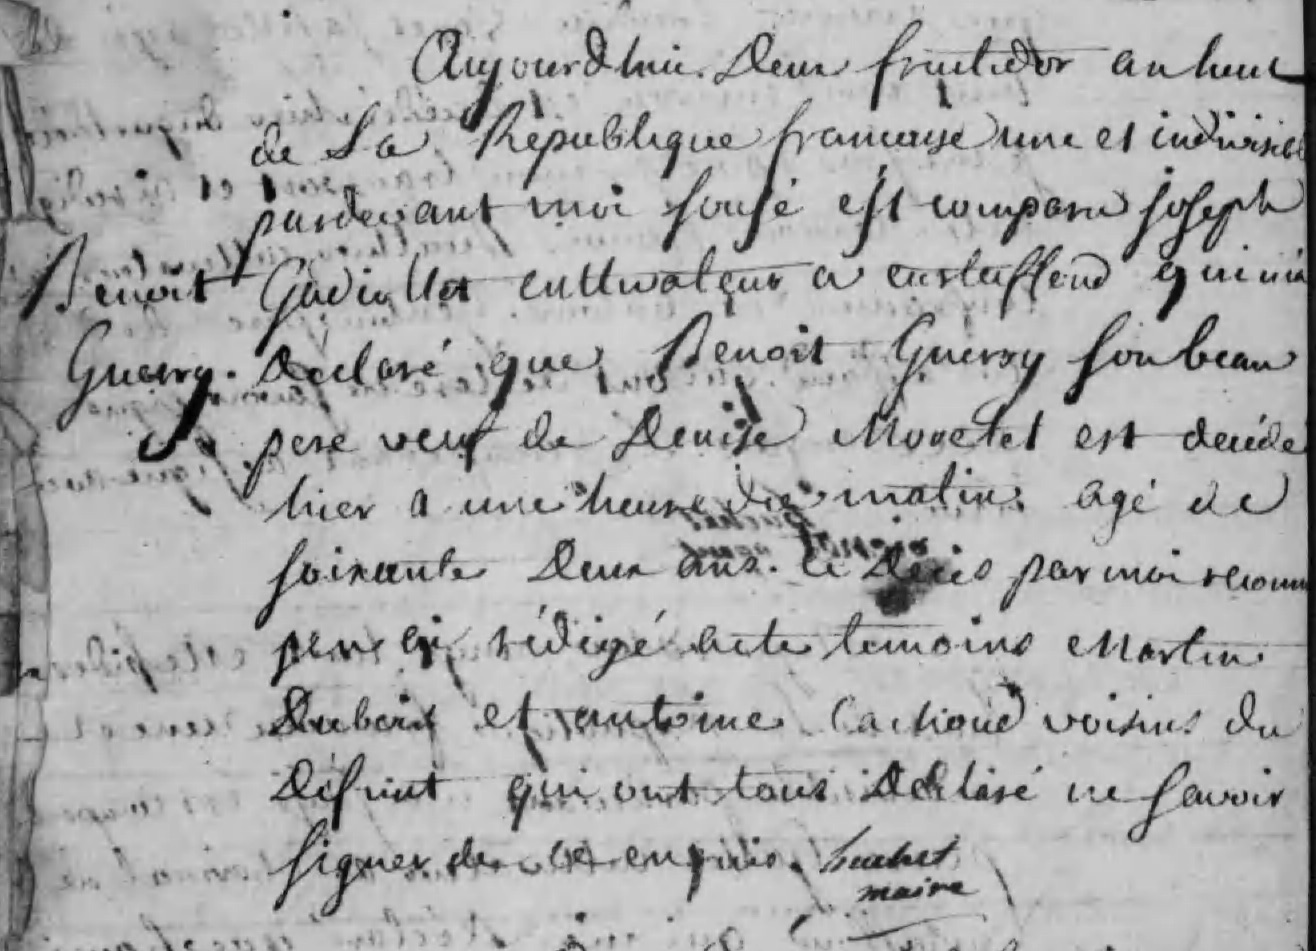 Aujourdhui Deux fructidor an huit
de La Republique francaise une et indivisible
pardevant moi sousé est comparu joseph
Benoit
Gadiollet cultivateur a qui m'a
Guerry.
Déclaré que Benoit Guerry son beau
pere veuf de Denise Moretet est decéde
hier a une heure du matin. agé de
soixante Deux ans. ce Décès par moi reconnu
rédigé acte temoins Martin
Dubois et antoine voisins du
Défunt qui ont tous Déclaré ne savoir
signer de ce enquis. huchet
maire